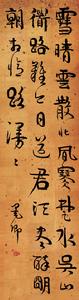 雪晴雲散北風寒楚水吳山
道路難今日送君須盡醉明
朝相憶路漫漫